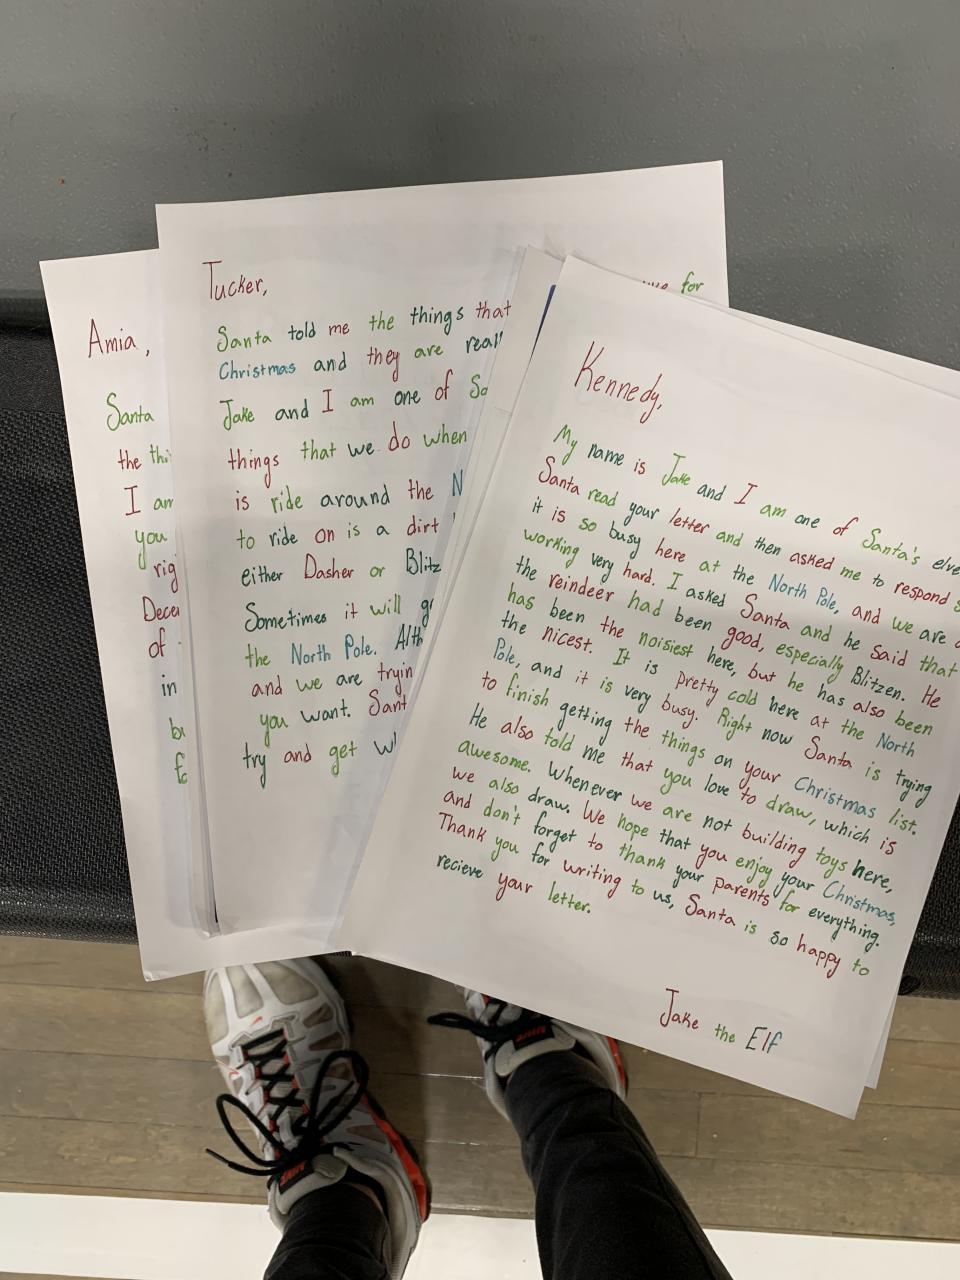 Amia,
Santa
the
I am
you
of
in
Tucker,
for
Santa told me the things that
Christmas and they are
Jake and I am one of
things that we do when
is ride around the
to ride on is a dirt
either Dasher or
Sometimes it will
the North Pole.
and we are
you want.
try and get
Kennedy,
My name is Jake and I am one of Santa's
Santa read your letter and then asked me to respond
it is so busy here at the North Pole, and we are
working very hard. I asked Santa and he said that
the reindeer had been good, especially Blitzen. He
has been the noisiest here, but he has also been
the nicest. It is pretty cold here at the North
Pole, and it is very busy. Right now Santa is trying
to finish getting the things on your Christmas list.
He also told me that you love to draw, which is
awesome. Whenever we are not building toys here,
we also draw. We hope that you enjoy your Christmas,
and don't forget to thank your parents for everything.
Thank you for writing to us, Santa is so happy to
recieve your letter.
Jake the Elf